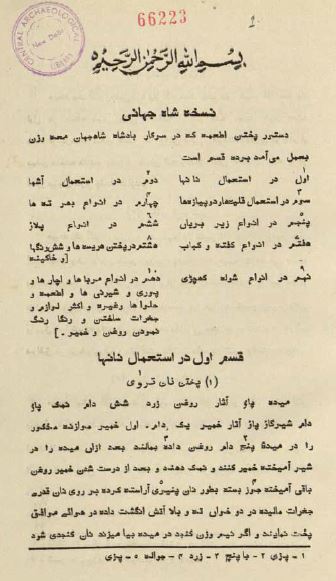 66223
1.
CENTRAL ARCHAEOLOGICAL LIBRARY
New Delhi
بسم الله الرحمن الرحيم
نسخۀ شاه جهانی
دستور پختن اطعمه که در سرکار بادشاه شاهجهان معه وزن
بعمل می‌آمد برده قسم است
اول در استعمال نانها دوم در استعمال آشها
سوم در استعمال قلیه‌ها و دو پیازه‌ها چهارم در انواع بهرته ها
پنجم در انواع زیر بریان ششم در انواع پلاؤ
هفتم در انواع کفته و کباب هشتم در پختن هریسه ها و شش رنگها
[و خاگینه
نهم در انواع شوله کهچڑی دهم در انواع مرباها و اچار ها و
پوری و شیرنی ها و اطعمه و
حلوا ها وغیره و اکثر لوازم و
جغرات ساختن و رنگا رنگ
نمودن روغن و خمیر . ]
قسم اول در استعمال نانها
(۱) پختن نان تروی
میده پاؤ آثار روغن زرد شش دام نمک پاؤ
دام شیرگاز پاؤ آثار خمیر یک دام . اول خمیر موازنه مذکور
را در میدۀ پنج دام روغن داده بمالند بعد ازان میده را در
شیر آمیخته خمیر کنند و نمک دهند و بعد از درست شدن خمیر روغن
باقی آمیخته جوز بسته بطور نان پنیری آراسته کرده بر روی نان قدری
جغرات مالیده در دو خوانی ته و بالا آتش انگشت داده در هوائی موافق
پخت نمایند و اگر نیم وزن کنجد در میده بیامیزند نان کنجدی شود
۱ - پڑی ۲ - با پنج ۳ - زرد ۴ - جواله ۵ - پڑی